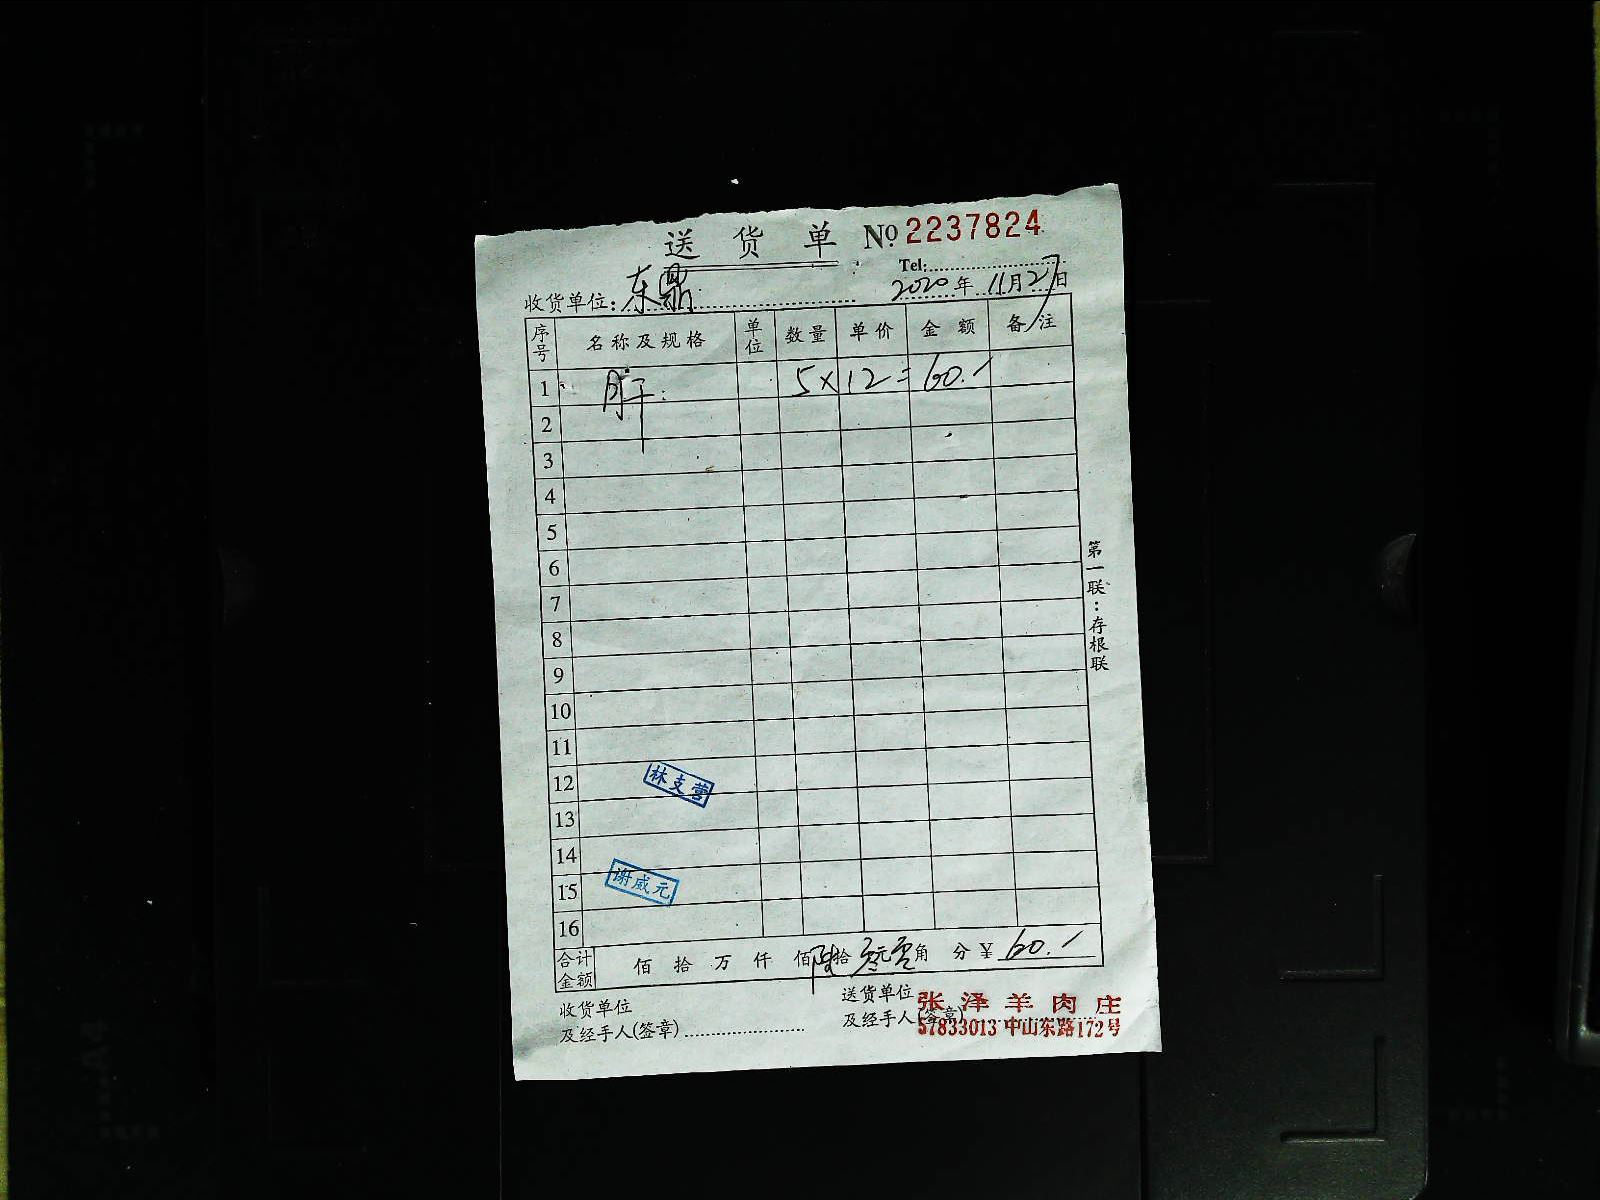 送货单 № 2237824
Tel:
收货单位: 东鼎 2020年11月27日
序号 名称及规格 单位 数量 单价 金额 备注
1 肝 5×12=60.
2
3
4
5
6
7
8
9
10
11
12
13
14
15
16
林支营
谢咸元
合计金额 佰拾万仟佰陆拾零元零角 分¥ 60.
收货单位 送货单位
及经手人(签章) 及经手人(签章)
张泽羊肉庄
57833013 中山东路172号
第一联:存根联